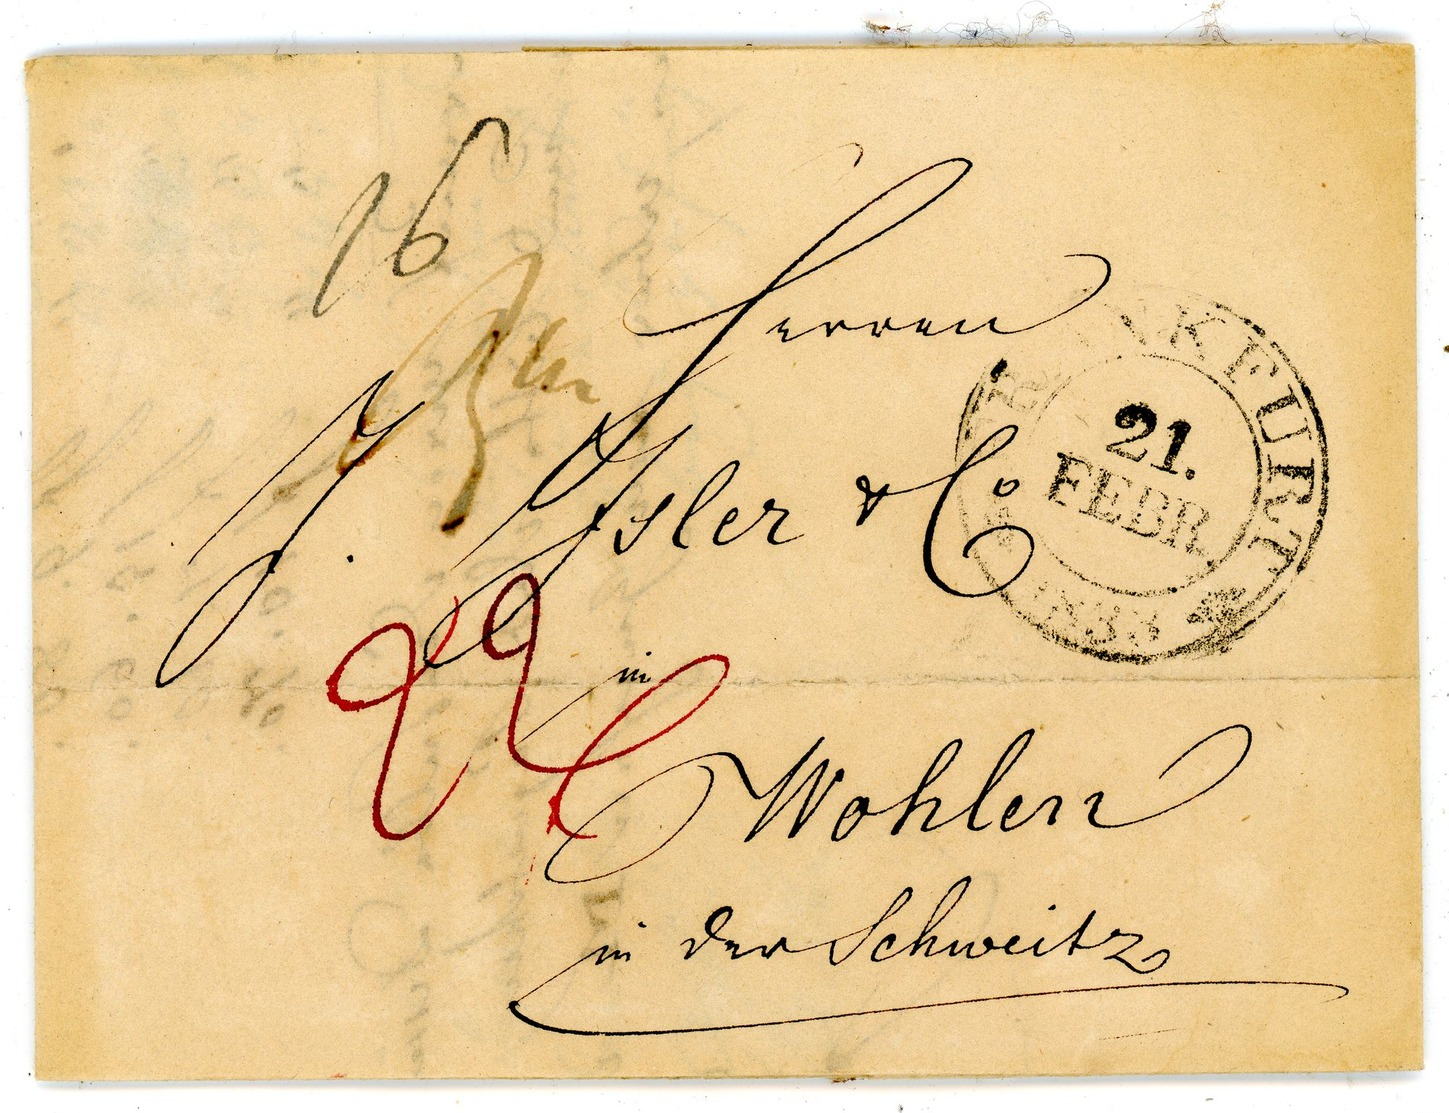 16
Herren
J. Isler & Co
in
Wohlen
in der Schweitz
FRANKFURT
21.
FEBR.
1838